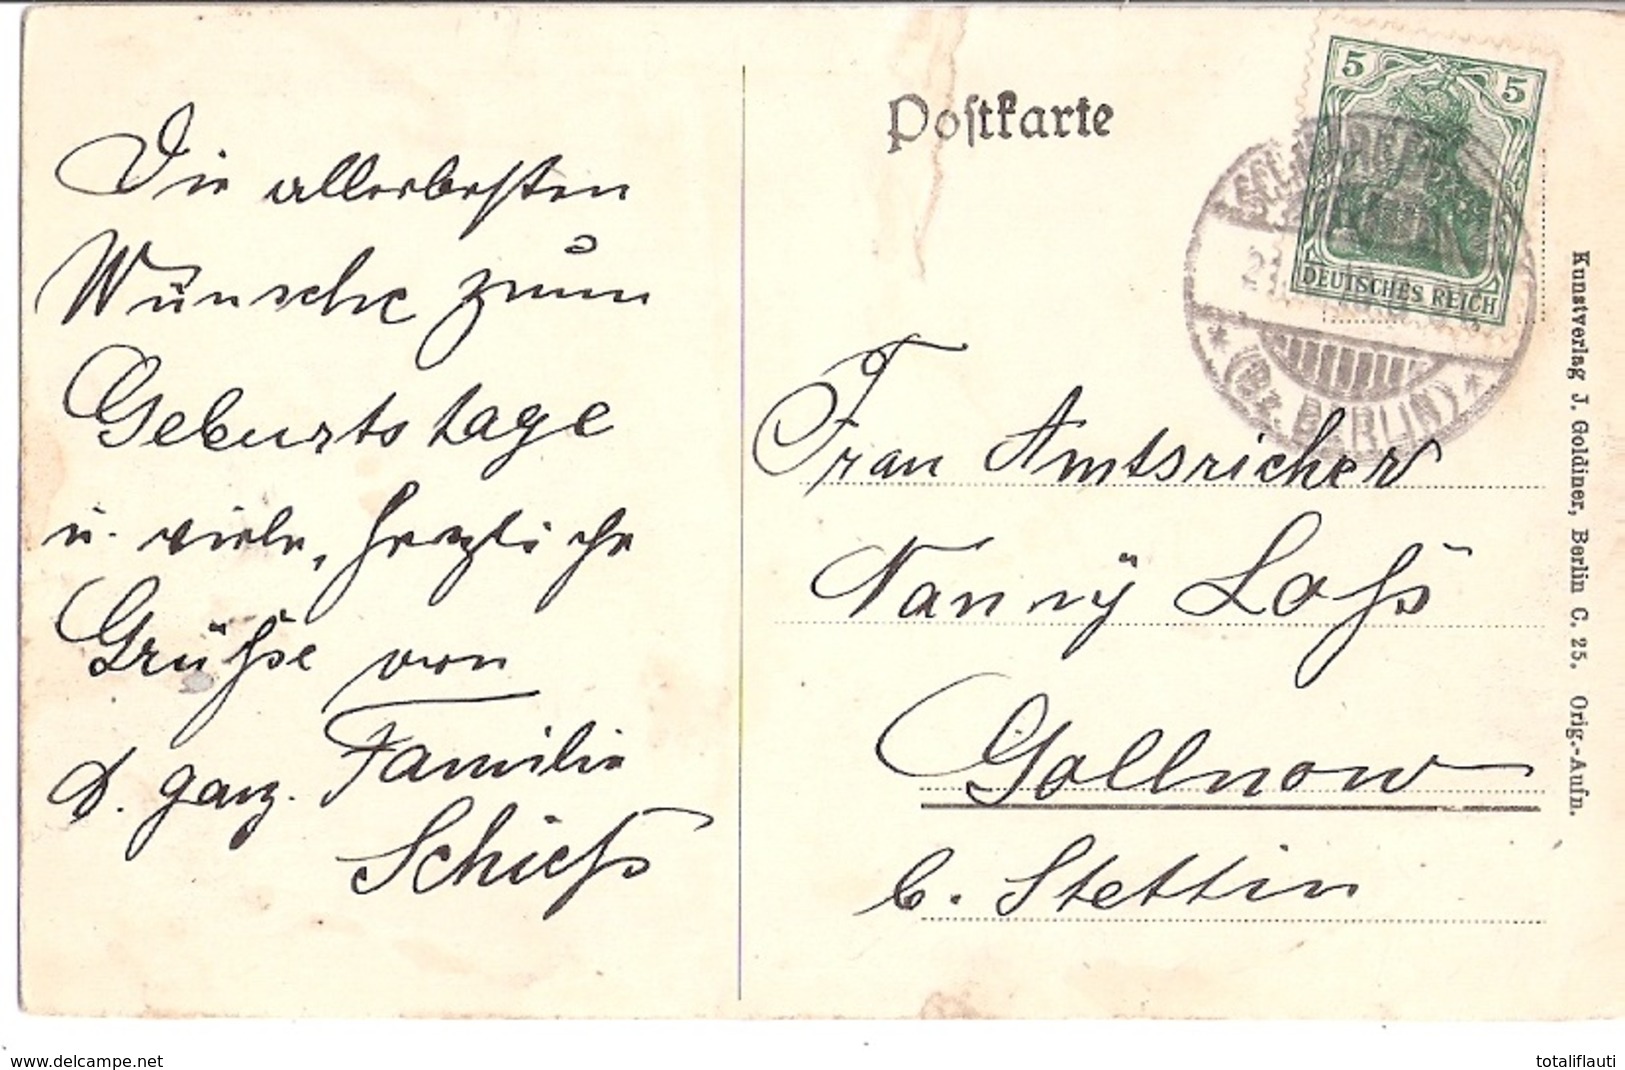 Die allerbesten
Wünsche zum
Geburtstage
u. viele, herzliche
Grüße von
d. ganz. Familie
Schieß
Postkarte
5 5
DEUTSCHES REICH
(Bz. BERLIN)
Frau Amtsricher
Nanny Loß
Gollnow
b. Stettin
Kunstverlag J. Goldiner, Berlin C. 25. Orig.-Aufn.
www.delcampe.net
totaliflauti